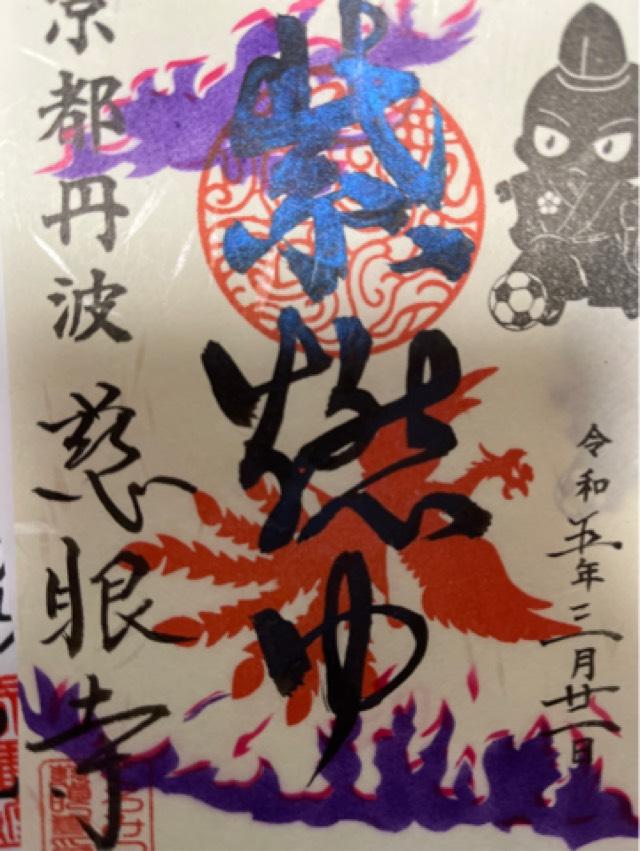 令和五年三月廿一日
紫燃ゆ
京都丹波 慈眼寺